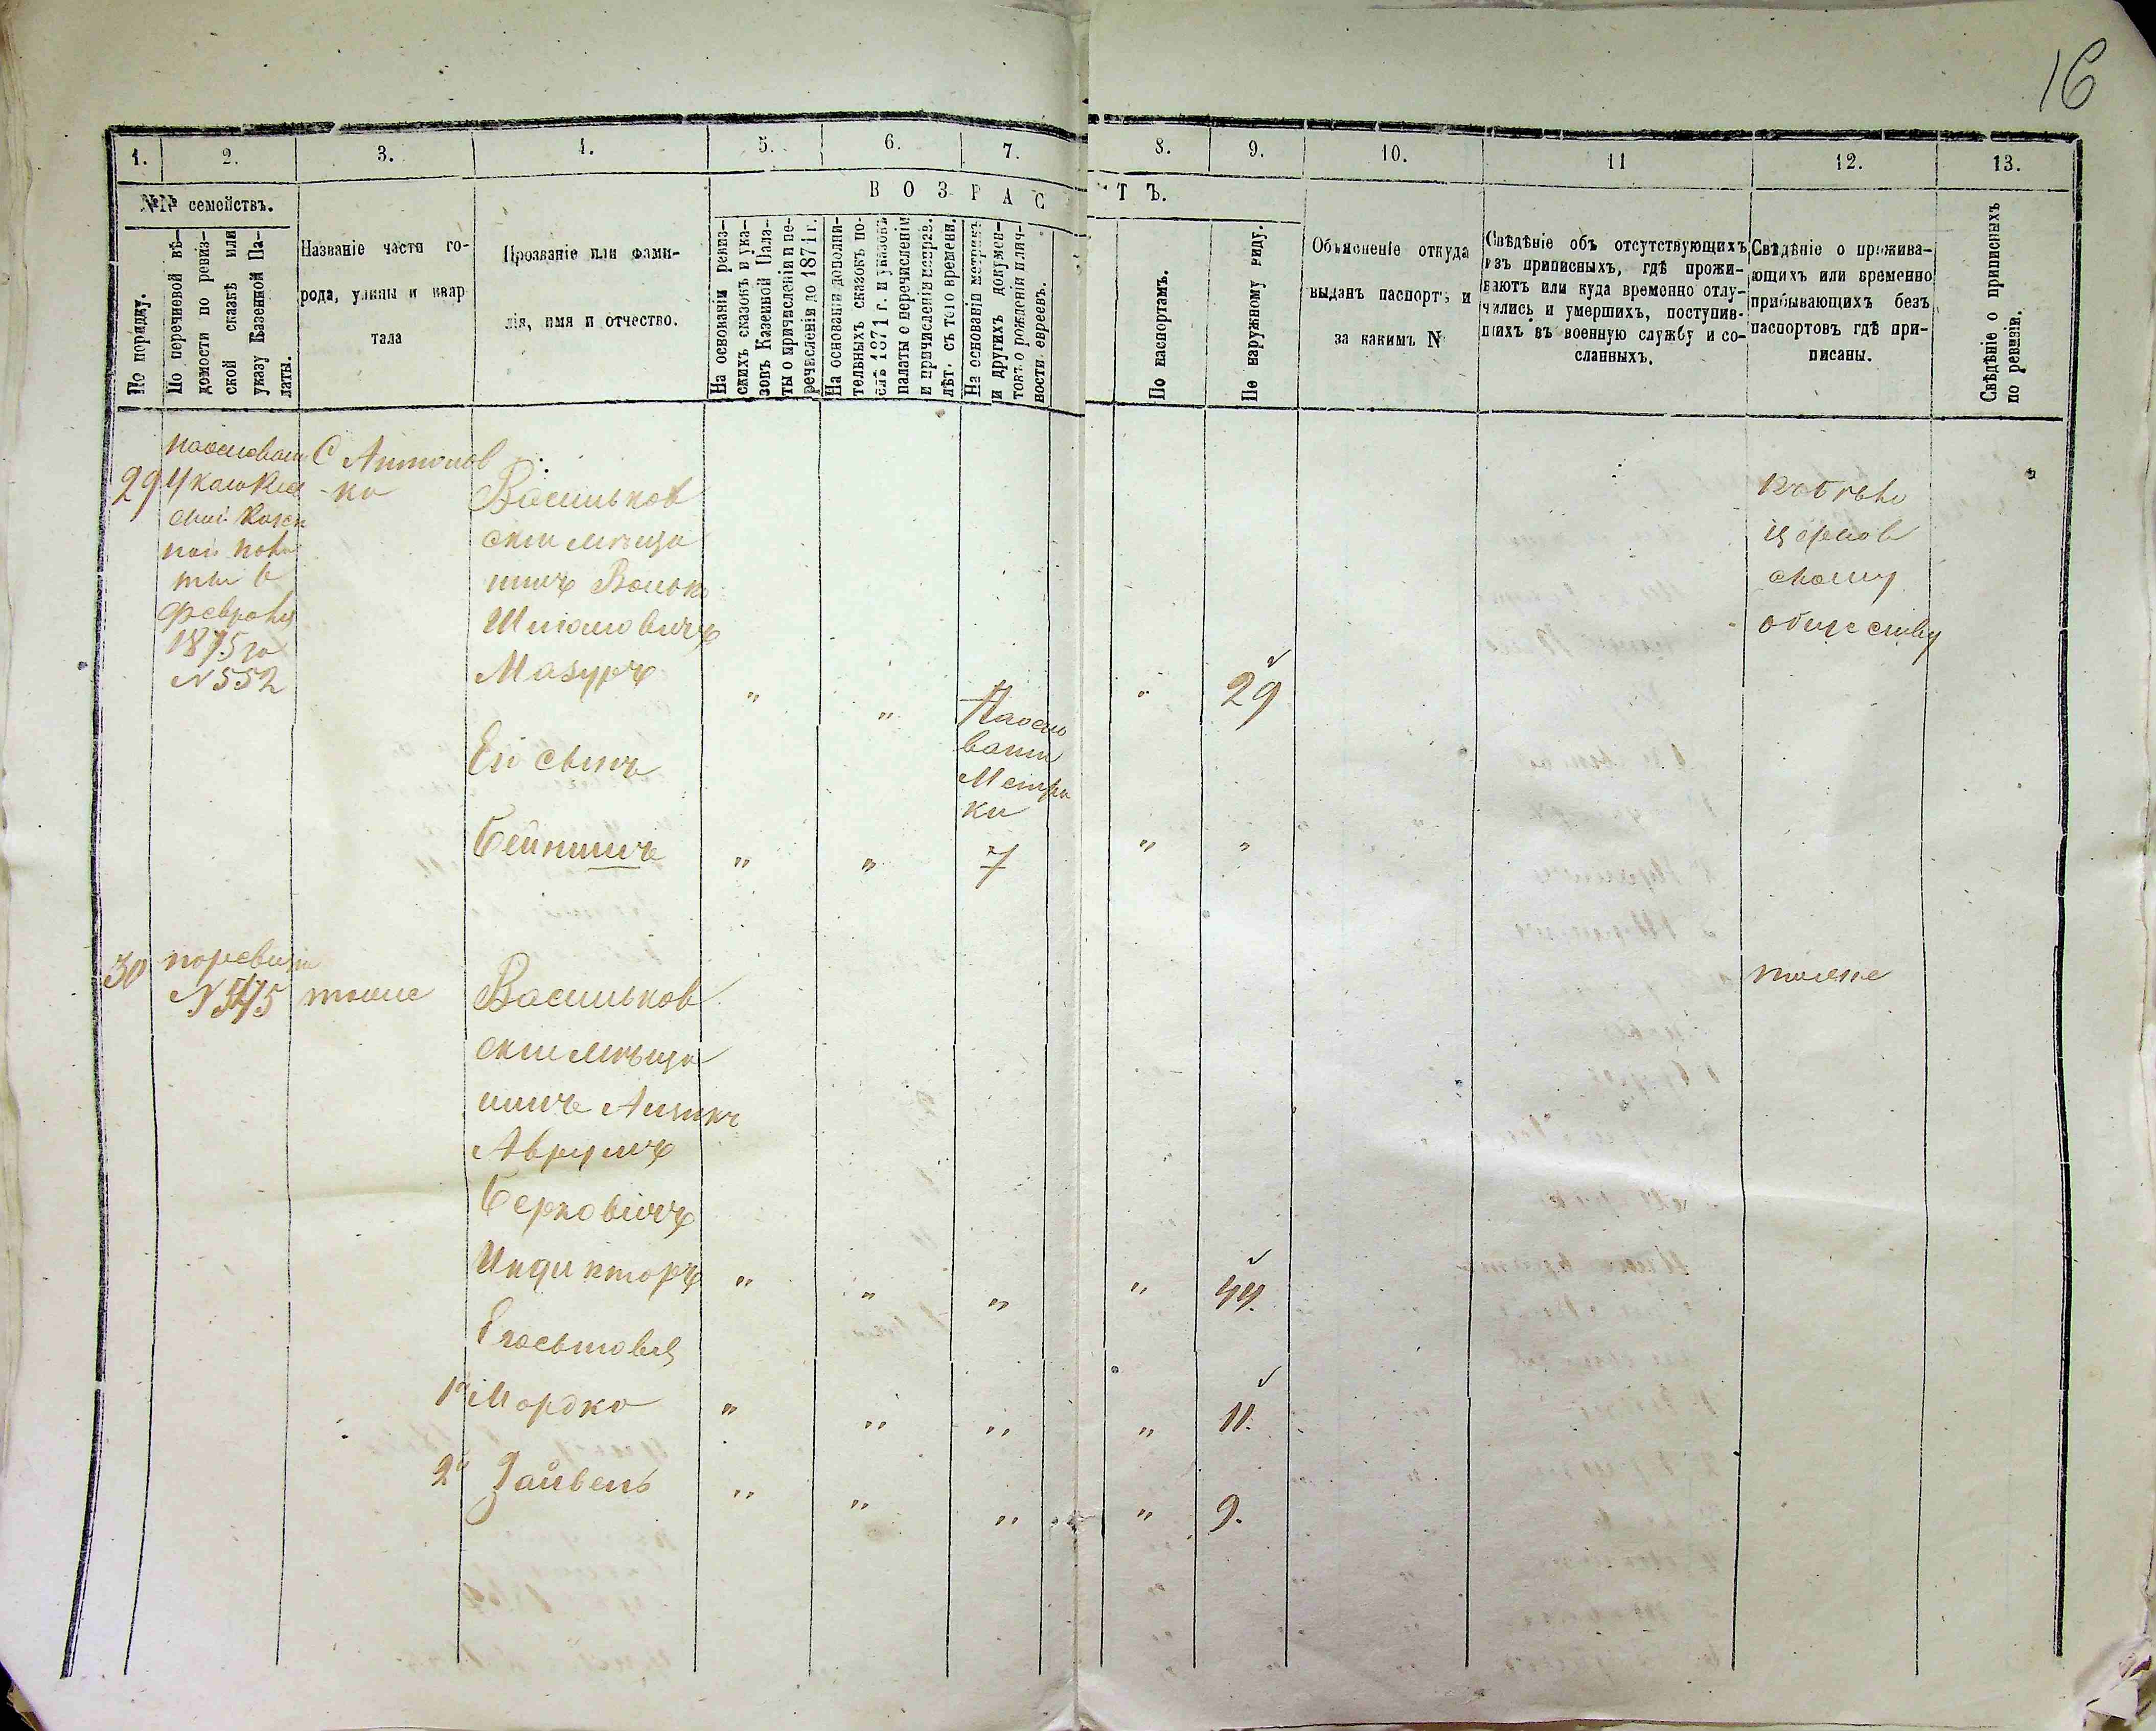 16
1.
2.
3.
4.
5.
6.
7.
8.
9.
10.
11
12.
13.
№№ семействъ.
По порядку.
По перечневой вѣ-
домости по ревиз-
ской сказкѣ или
указу Казенной Па-
латы.
Названіе части го-
рода, улицы и квар
тала
Прозваніе или фами-
лія, имя и отчество.
ВОЗРАСТЪ.
На основаніи ревиз-
скихъ сказокъ и ука-
зовъ Казенной Пала-
ты о причисленіи и пе-
речисленіи до 1871 г.
На основаніи дополни-
тельныхъ сказокъ по-
слѣ 1871 г. и указовъ
палаты о перечисленіи
и причисленіи исправ.
лѣт. съ того времени.
На основаніи метрикъ
и другихъ докумен-
товъ о рожденіи и лич-
ности евреевъ.
По паспортамъ.
По наружному виду.
Объясненіе откуда
выданъ паспортъ и
за какимъ №
Свѣдѣніе объ отсутствующихъ
изъ приписныхъ, гдѣ прожи-
ваютъ или куда временно отлу-
чились и умершихъ, поступив-
шихъ въ военную службу и со-
сланныхъ.
Свѣдѣніе о прожива-
ющихъ или временно
прибывающихъ безъ
паспортовъ гдѣ при-
писаны.
Свѣдѣніе о приписныхъ
по ревизіи.
29
Февраля
1875 за
N 552
С Антонов
-ка
Васильков
скій мѣща
нинъ Волько
Шмулевичъ
Мазуръ
" " "
29
Его сынъ
На осно
ваніи
Метри
ки
Бейнишъ
" " 7 " "
къ бѣло
церков
скому
обществу
30
по ревизіи
N 575
тоже
Васильков
скій мѣща
нинъ Аизикъ
Аврумъ
Берковичъ
Индикторъ
" " " " 44.
Его сыновья
1й Мордко " " " " 11.
2й Зайвель " " " " 9.
тоже